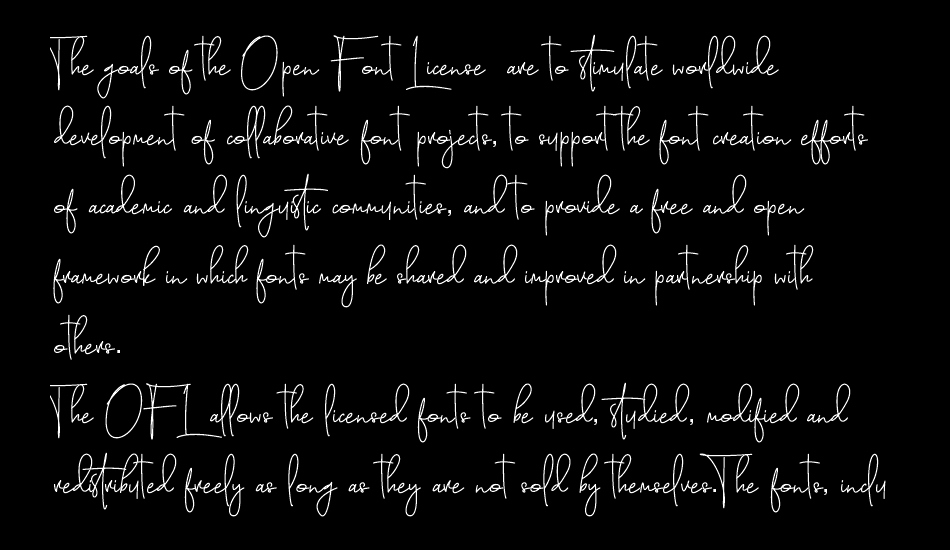 The goals of the Open Font License are to stimulate worldwide
development of collaborative font projects, to support the font creation efforts
of academic and linguistic communities, and to provide a free and open
framework in which fonts may be shared and improved in partnership with
others.
The OFL allows the licensed fonts to be used, studied, modified and
redistributed freely as long as they are not sold by themselves.The fonts, inclu